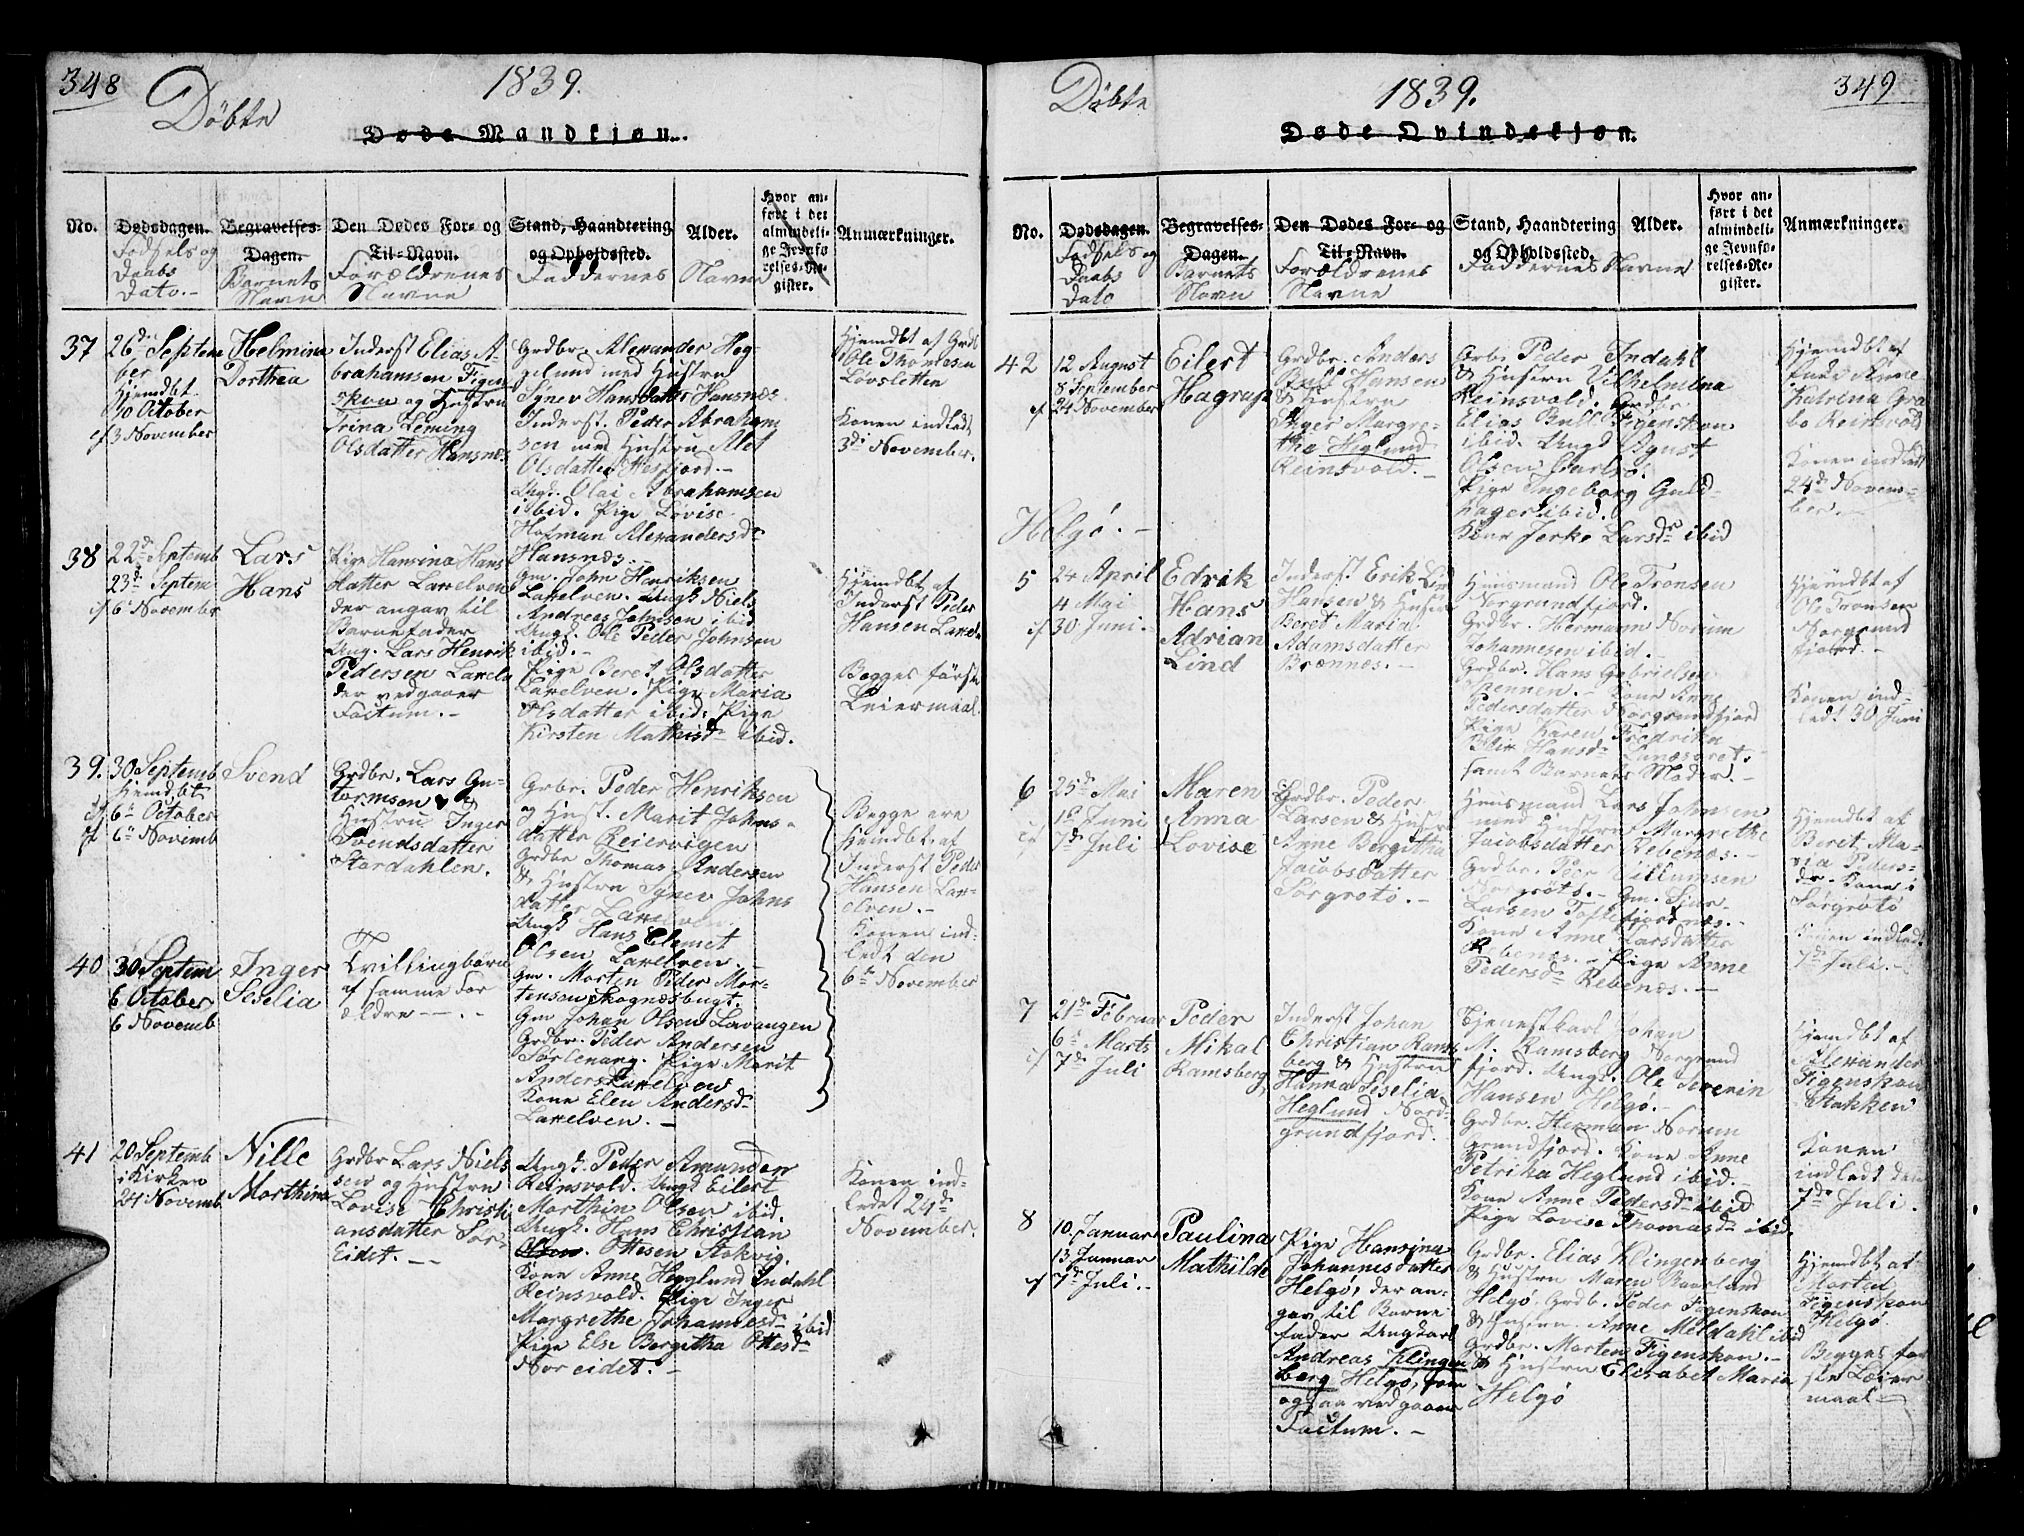 348
Döbte
1839.
Døde Mandkjøn.
No.
Dødsdagen.
Fødsels og
Daabs
Dato.-
Begravelses-
Dagen.
Barnets
Navn
Den Dødes For- og
Til-Navn.
Forældrenes
Navne
Stand, Haandtering
og Opholdssted.
Faddernes Navne
Alder.
Hvor an-
ført i det
almindeli-
ge Jevnfø-
relses-Re-
gister.
Anmærkninger.
37
26d Septem
ber
Hjemdbt
10 October
cf 3 November
Helmina
Dorthea
Inderst Elias A-
brahamsen Figen-
skou og Hustru
Trina Leming
Olsdatter Hansnæs
Grdbr. Alexander Heg-
gelund med Hustru
Synev Hansdatter Hansnæs.
Inderst. Peder Abraham
sen med Hustru Alet
Olsdatter Hesfjord.-
Ungk. Olai Abrahamsen
ibid. Pige Lovise
Hofman Alexandersdr
Hansnæs.-
Hjemdbt af Grdb
Ole Thomesen
Lövsletten
Konen indledt
3di November.
38
22d Septemb
23d Septem
cf 6t November
Lars
Hans
Pige Hansina Hans
datter Laxelven
der angav til
Barnefader
Ung. Lars Henrik
Pedersen Laxelv
der vedgaaer
Factum.-
Gm. John Henriksen
Laxelven. Ungk Niels
Andreas Johnsen ibid
Ungk. Ole Peder Johnsen
ibid.-
Pige Beret Olsdatter
Laxelven. Pige Maria
Olsdatter ibid. Pige
Kirsten Mathisdr ibid.
Hjemdbt af
Inderst Peder
Hansen Laxel.
Begges første
Leiermaal.
39.
30 Septemb
Hjemdbt
6te October
cf 6te Novemb
Svend
Grdbr. Lars Gu-
tormsen &
Hustru Inger
Svendsdatter
Stordahlen.
Grbr. Peder Henriksen
og Hust. Marit Johns-
datter Reiervigen
Grdbr Thomas Andersen
& Hustru Synev Johns
datter Laxelven.
Ungk Hans Clemet
Olsen Laxelven.-
Begge ere
Hjemdbt. af
Inderst Peder
Hansen Lax-
elven.-
Konen ind-
ledt den
6te November
40
30 Septem
6 October
6 Novemb
Inger
Seselia
Tvillingbörn
af samme For
ældre -- .-
Gm. Morten Peder Mor-
tensen Skognæsbugt.
Gm Johan Olsen Lavangen
Grdbr. Peder Andersen
Sørlenang. Pige Marit
Andersd Laxelven
Kone Elen Andersdr
Laxelven.-
41
20 Septemb
i Kirken
24 Novemb
Nille
Morthina
Grdbr Lars Niels
sen og Hustru
Lovise Christi
ansdatter Sør-
Eidet.--
Ungk. Peder Amundsen
Reinsvold. Ungk Eilert
Morthin Olsen ibid.
Ungk. Hans Christian
Olsen. Ottesen Stokvig.
Kone Anne Hegglund Indahl
Reinsvold. Pige Inger
Margrethe Johannesdr ibid
Pige Else Bergitha Ottesdr
Nor eidet.-
Konen ind-
ledet 24de
November.
349
Döbte
1839.
Døde Qvindekjøn.
No.
Dødsdagen.
Fødsels og
Daabs
Dato
Begravelses-
Dagen.
Barnets
Navn
Den Dødes For- og
Til-Navn.
Forældrenes
Navne
Stand, Haandtering
og Opholdssted.
Faddernes Navne
Alder.
Hvor an-
ført i det
almindeli-
ge Jevnfø-
relses-Re-
gister.
Anmærkninger.
42
12 August
8 September
cf 24 November
Eilert
Hagrup
Grdbr. Anders
Bull Hansen
& Hustru
Inger Margre-
the Heglund
Reinsvold.-
Peder Indahl
& Hustru Vilhelmina
Reinsvold. Grdbr.
Elias Bull Figenskou
ibid. Ungk Agust
Olsen Carlsö.
Pige Ingeborg Guld-
hager ibid.
Kone Jerke Larsdr ibid
Hjemdbt af
Anne
Katrina
bo Reinsvold
Konen indledt
24de Novem-
ber.-
Helgö.-
5
24 April
4 Mai
cf 30 Juni.-
Edrik
Hans
Adrian
Lind
Inderst Erik Lind
Hansen & Hustru
Beret Maria
Adamsdatter
Brænnæs.-
Huusmand Ole Tronsen
Norgrundfjord.
Grdbr. Hermann Norum
Johannesen ibid.-
Grdbr. Hans Gabrielsen
Spennen.- Kone Anne
Pedersdatter Norgrundfjord
Pige Karen Fredrika
Blix Hansdr Lanæsöret.
samt Barnets Moder.-
Hjemdbt af
Ole Tronsen
Norgrund
fjord.-
Konen ind-
ledt 30 Juni
6
25de Mai
16 Juni
cf 7de Juli
Maren
Anna
Lovise
Grdbr. Peder
Larsen & Hustru
Anne Bergitha
Jacobsdatter
Sörgrotö.-
Huusmand Lars Johnsen
med Hustru Margrethe
Jacobsdatter Rebenæs.-
Grdbr. Peer Villumsen
Norgrötö.- Gm. Sjur
Larsen Toftefjordnæs.-
Kone Anne Larsdatter
Rebenæs.- Pige Anne
Pedersdr Rebenæs.-
Hjemdbt af
Beret Ma-
ria Peders-
dr. Kone i
Sørgrötö
Konen indledt
7de Juli.-
7
21de Februar
6te Marts
cf 7de Juli
Peder
Mikal
Ramsberg
Inderst Johan
Christian Rams
berg & Hustru
Hanna Seselia
Heglund Nord-
grundfjord.
Tjenestkarl Johan
M. Ramsberg Norgrund
fjord. Ungk. Ole Severin
Hansen Helgö.-
Grdbr. Herman Norum
Grundfjord. Kone Anne
Petrika Heglund ibid.-
Kone Anne Pedersdr ibid
Pige Lovise Thomasdr ibid
Hjemdbt af
Alexander
Figenskou
Stakken
Konen
indledt den
7de Juli.
8
10. Januar
13 Januar
cf 7de Juli.-
Paulina
Mathilde
Pige Hansina
Johannesdatter
Helgö, der an-
gav til Barne
fader Ungkarl
Andreas Klingen
berg Helgö, som
ogsaa vedgaaer
Factum.-
Grdbr. Elias Klingenberg
& Hustru Maren Baarlund
Helgö. Grdb. Peder Figenskou
& Hustru. Anne Meldahl ibid
Grdbr. Morten Figenskou.-
& Hustru Elisabet Maria
Helgö
Hjemdbt af
Morten
Figenskou
Helgö.
Begges før
ste Leier
maal-